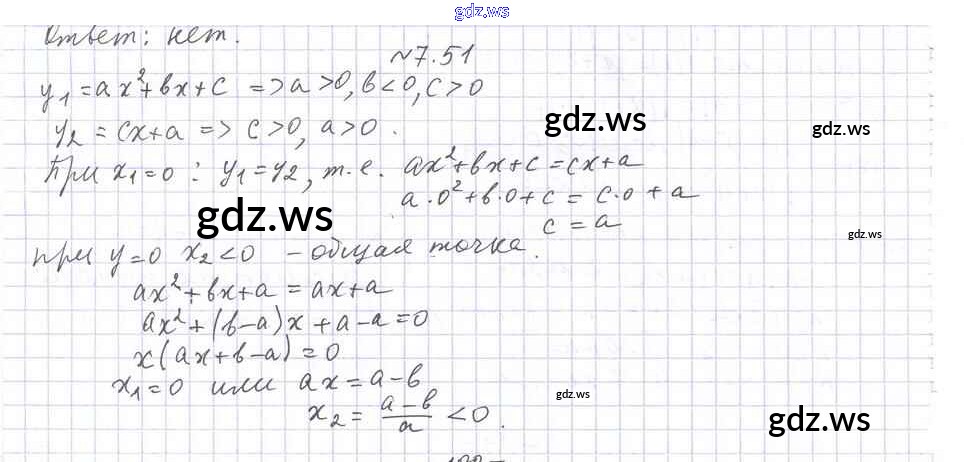 gdz.ws
Ответ: нет.
№7.51
y₁ = ax² + bx + c => a > 0, b < 0, c > 0
y₂ = cx + a => c > 0, a > 0.
gdz.ws
gdz.ws
При x₁ = 0 : y₁ = y₂, т.е. ax² + bx + c = cx + a
a · 0² + b · 0 + c = c · 0 + a
gdz.ws
c = a
gdz.ws
при y = 0 x₂ < 0 – общая точка.
ax² + bx + a = ax + a
ax² + (b – a)x + a – a = 0
x(ax + b – a) = 0
x₁ = 0 или ax = a – b
gdz.ws
x₂ = (a – b)/a < 0.
gdz.ws